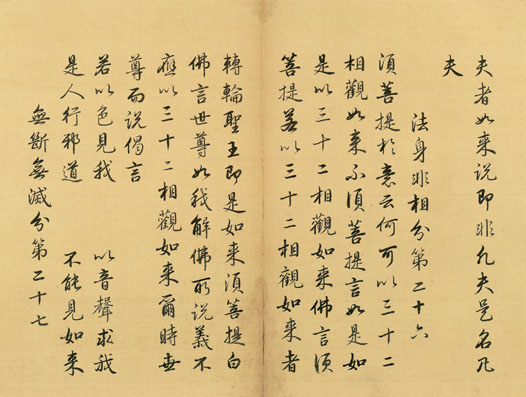 夫者如来说即非凡夫是名凡
夫
法身非相分第二十六
須菩提於意云何可以三十二
相觀如来不須菩提言如是如
是以三十二相觀如来佛言須
菩提若以三十二相觀如来者
轉輪聖王即是如来須菩提白
佛言世尊如我解佛所说義不
應以三十二相觀如来爾時世
尊而说偈言
若以色見我 以音聲求我
是人行邪道 不能見如来
無斷無滅分第二十七